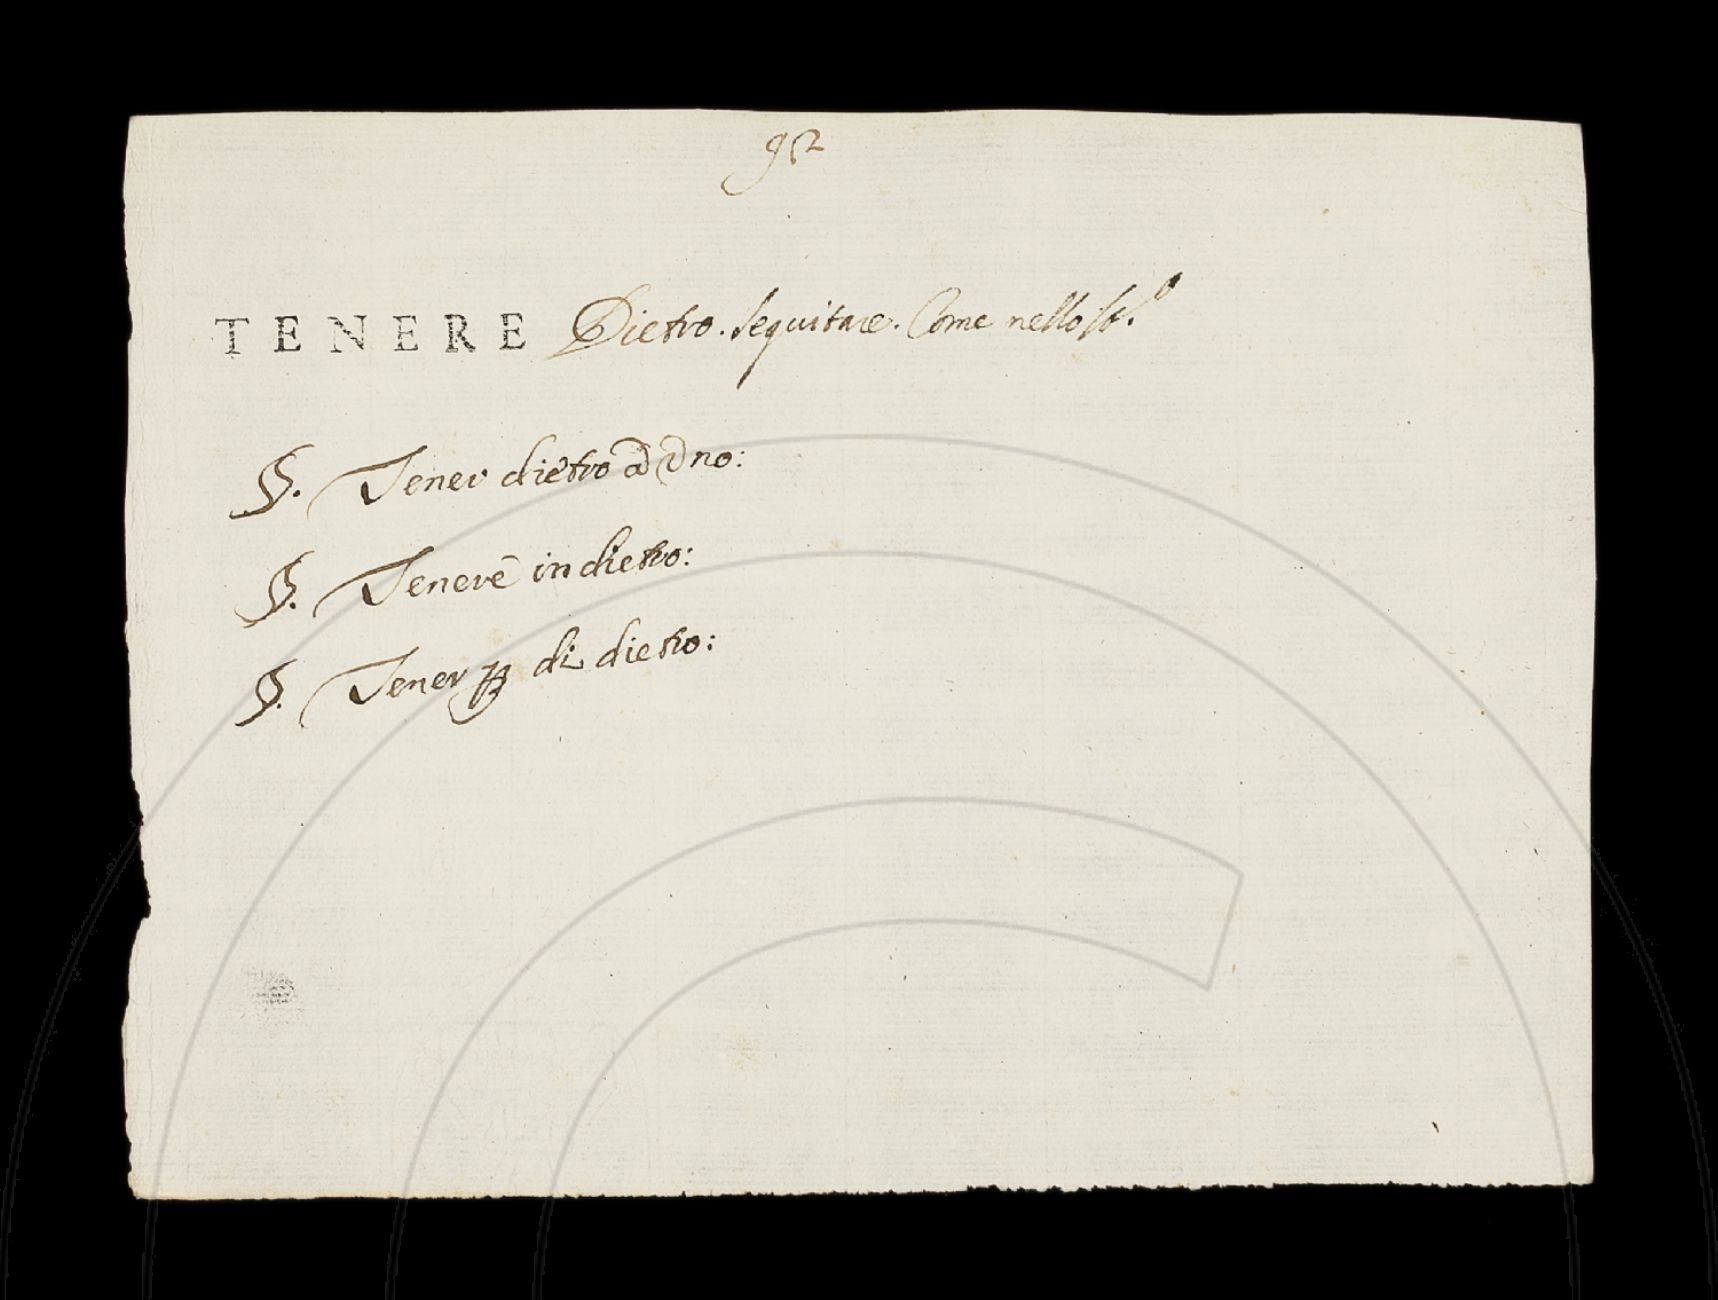 92
TENERE Dietro. Seguitare. Come nello
§. Tener dietro ad Uno:
§. Tenere in dietro:
§. Tener di dietro: